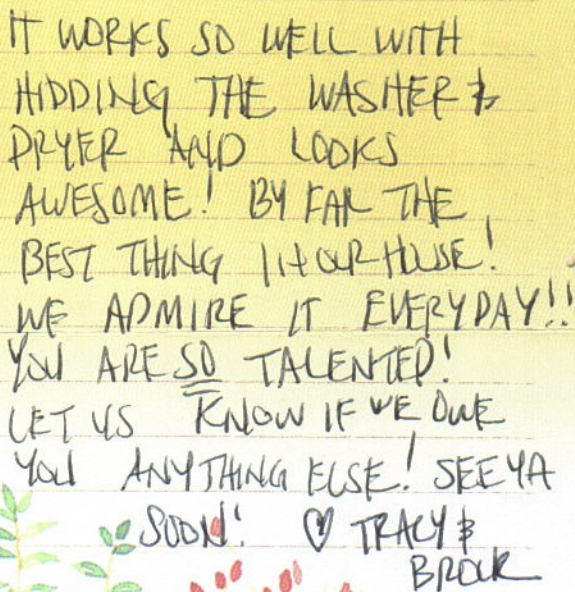 IT WORKS SO WELL WITH
HIDDING THE WASHER &
DRYER AND LOOKS
AWESOME! BY FAR THE
BEST THING IN OUR HOUSE!
WE ADMIRE IT EVERYDAY!!
YOU ARE SO TALENTED!
LET US KNOW IF WE OWE
YOU ANYTHING ELSE! SEE YA
SOON! ♡ TRACY &
BROCK